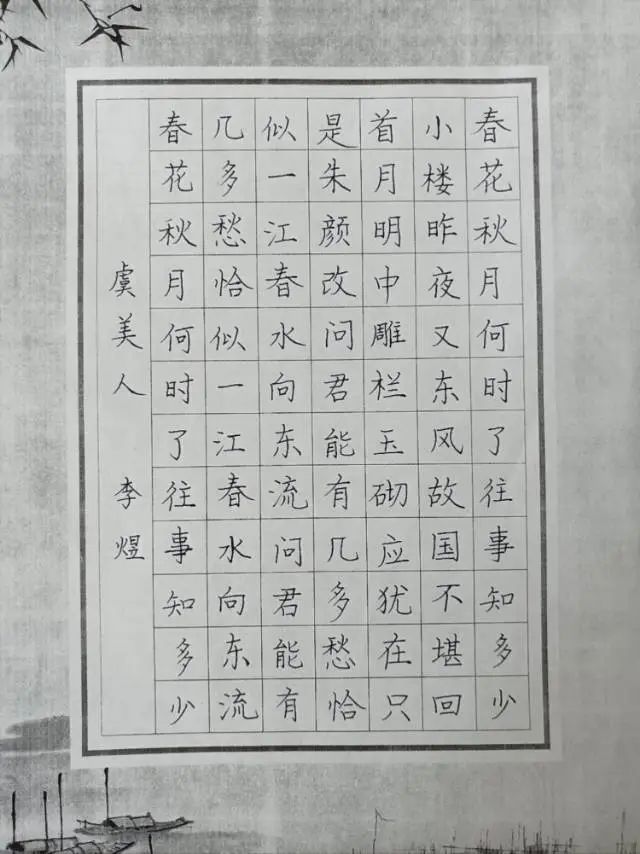 春花秋月何时了往事知多少
小楼昨夜又东风故国不堪回
首月明中雕栏玉砌应犹在只
是朱颜改问君能有几多愁恰
似一江春水向东流问君能有
几多愁恰似一江春水向东流
春花秋月何时了往事知多少
虞美人 李煜